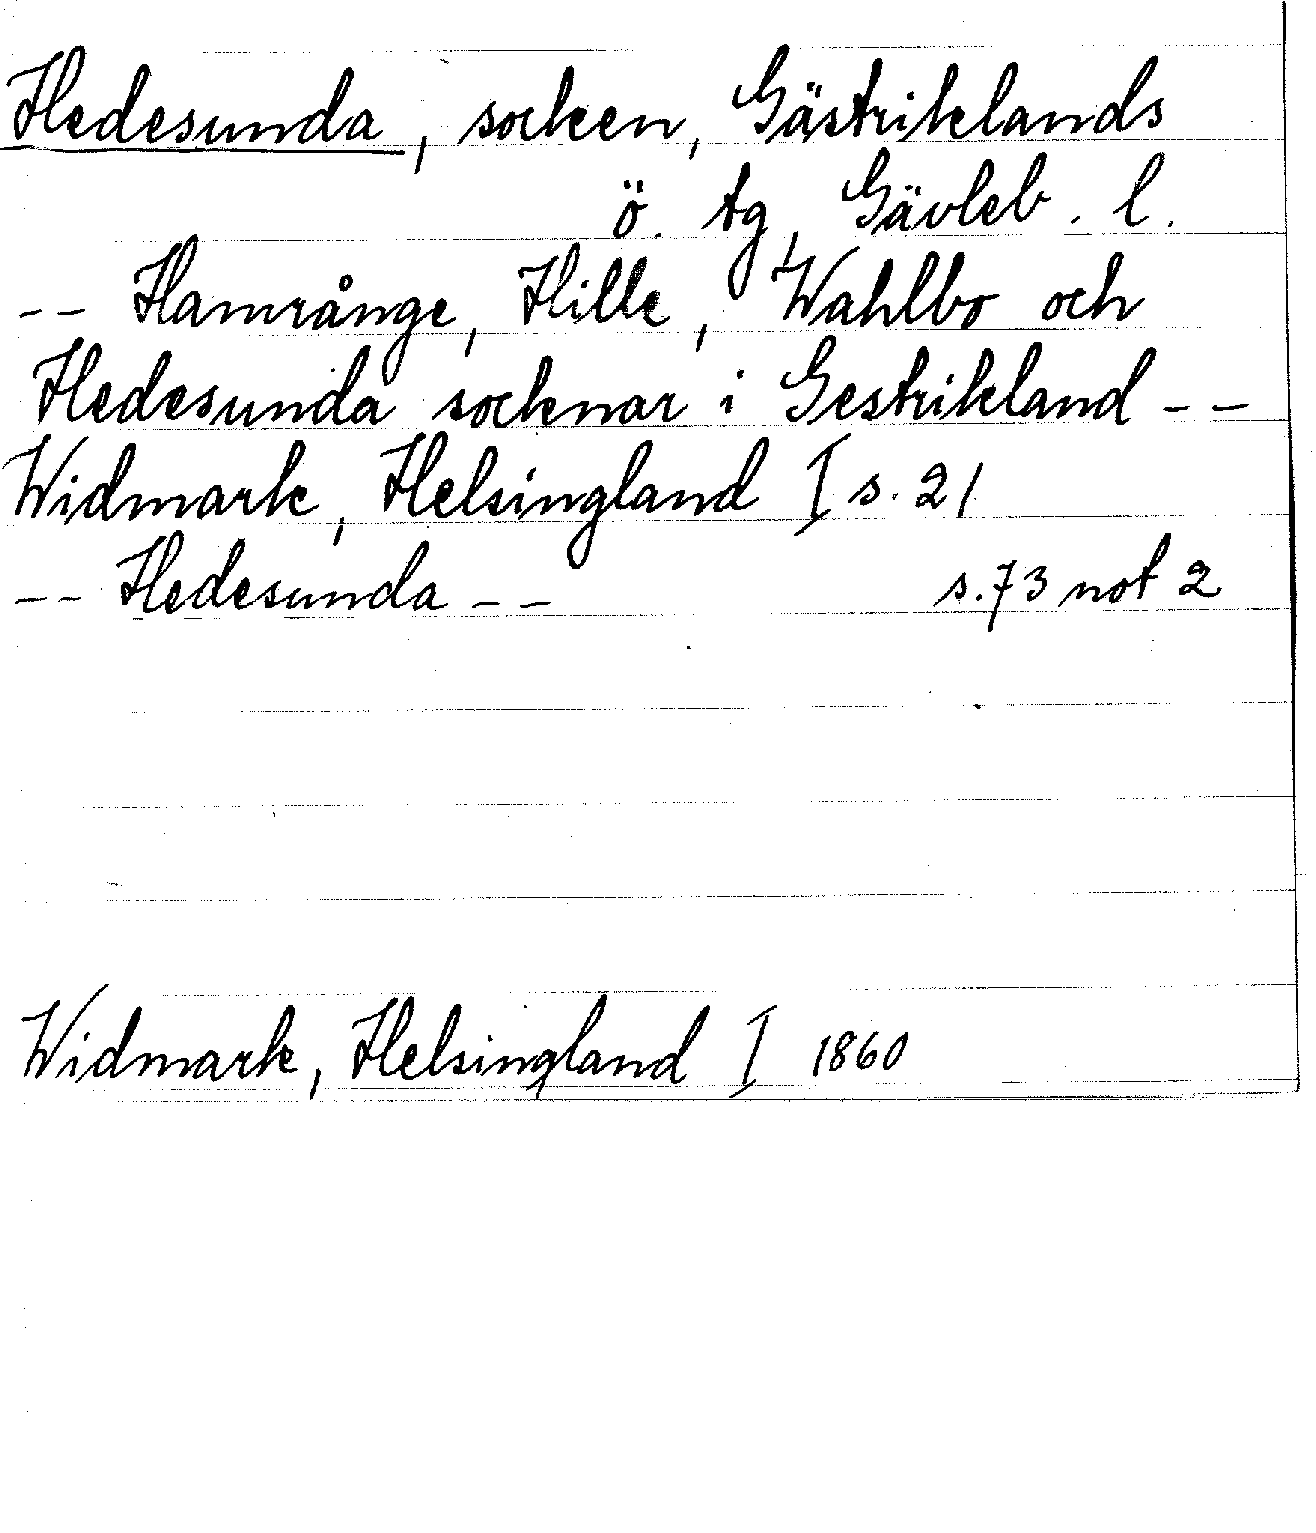 Hedesunda, socken, Gästriklands
ö. tg, Gävleb. l.
-- Hamrånge, Hille, Wahlbo och
Hedesunda socknar i Gestrikland --
Widmark, Helsingland I s. 21
-- Hedesunda -- s. 73 not 2
Widmark, Helsingland I 1860